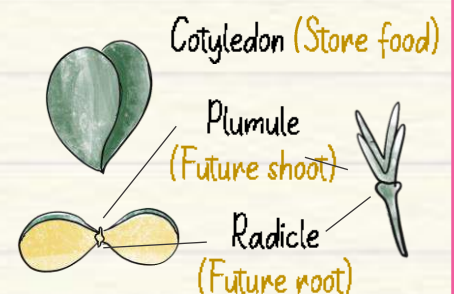 Cotyledon (Store food)
Plumule
(Future shoot)
Radicle
(Future root)